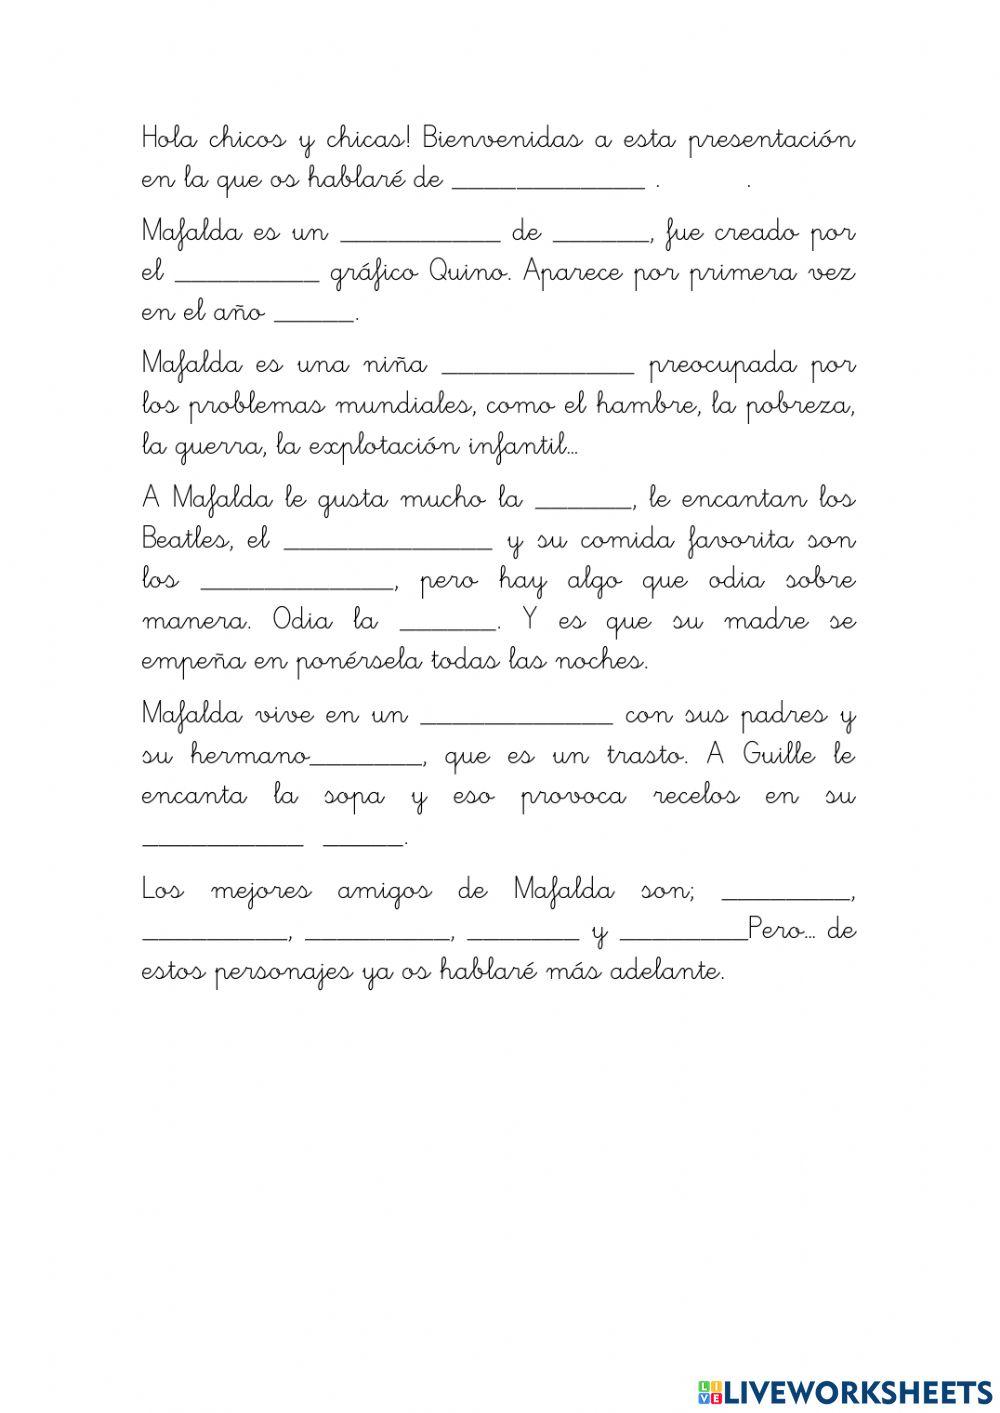 Hola chicos y chicas! Bienvenidas a esta presentación
en la que os hablaré de ____________ . .
Mafalda es un __________ de ______, fue creado por
el _________ gráfico Quino. Aparece por primera vez
en el año _____.
Mafalda es una niña ____________ preocupada por
los problemas mundiales, como el hambre, la pobreza,
la guerra, la explotación infantil...
A Mafalda le gusta mucho la ______, le encantan los
Beatles, el _____________ y su comida favorita son
los ____________, pero hay algo que odia sobre
manera. Odia la ______. Y es que su madre se
empeña en ponérsela todas las noches.
Mafalda vive en un ____________ con sus padres y
su hermano_______, que es un trasto. A Guille le
encanta la sopa y eso provoca recelos en su
__________ _____.
Los mejores amigos de Mafalda son; ________,
_________, _________, _______ y ________Pero... de
estos personajes ya os hablaré más adelante.
LIVE LIVEWORKSHEETS